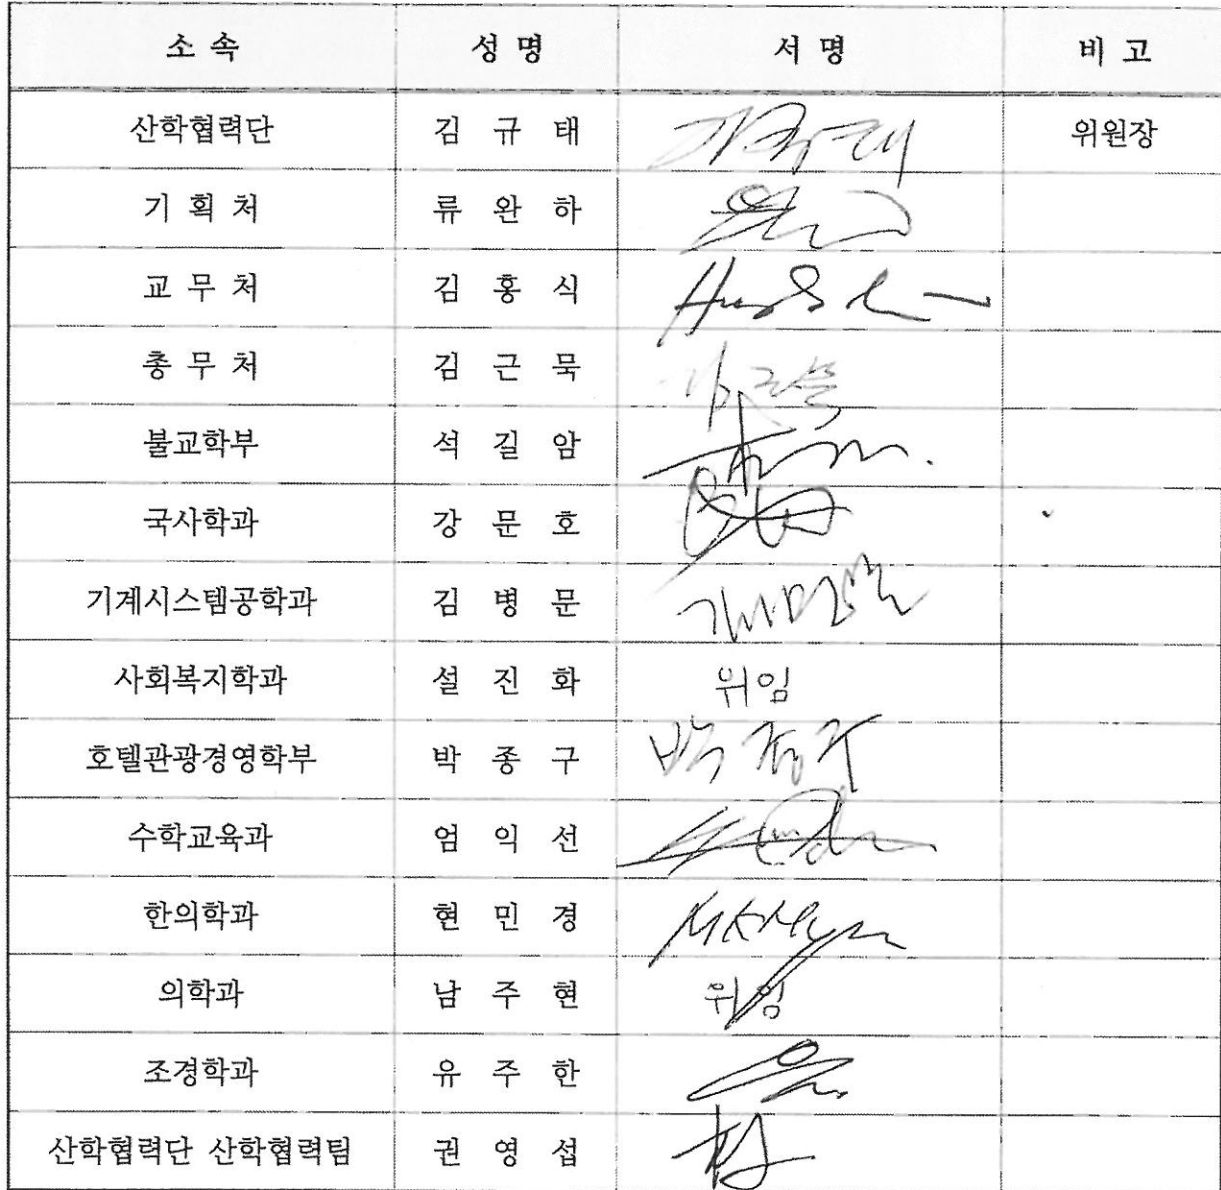 소 속 성 명 서 명 비 고
산학협력단 김 규 태 위원장
기 획 처 류 완 하
교 무 처 김 홍 식
총 무 처 김 근 묵
불교학부 석 길 암
국사학과 강 문 호
기계시스템공학과 김 병 문
사회복지학과 설 진 화 위임
호텔관광경영학부 박 종 구 박종구
수학교육과 엄 익 선
한의학과 현 민 경
의학과 남 주 현 위임
조경학과 유 주 한
산학협력단 산학협력팀 권 영 섭